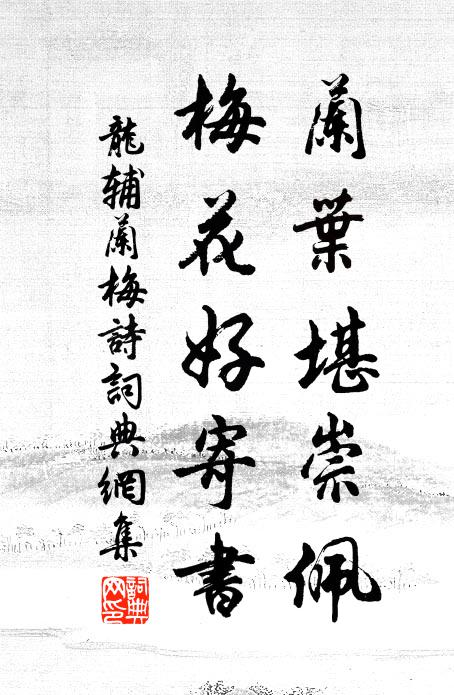 蘭葉堪崇佩
梅花好寄書
龍辅蘭梅詩詞典網集
詞典網印